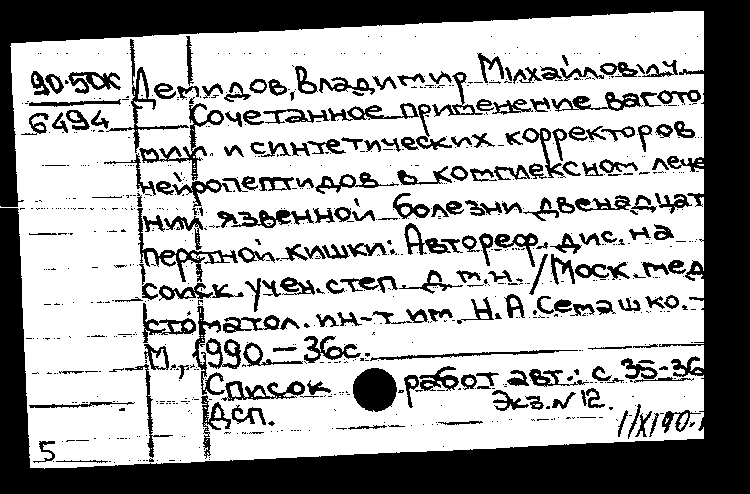 90-50К
6494
Демидов, Владимир Михайлович.
Сочетанное применение вагото
мии и синтетических корректоров
нейропептидов в комплексном лече
нии язвенной болезни двенадцат
перстной кишки: Автореф. дис. на
соиск. учен. степ. д.м.н. / Моск. мед
стоматол. ин-т им. Н.А. Семашко. -
М., 1990. - 36с.
Список работ авт.: с. 35-36
ДСП. Экз. N 12.
5